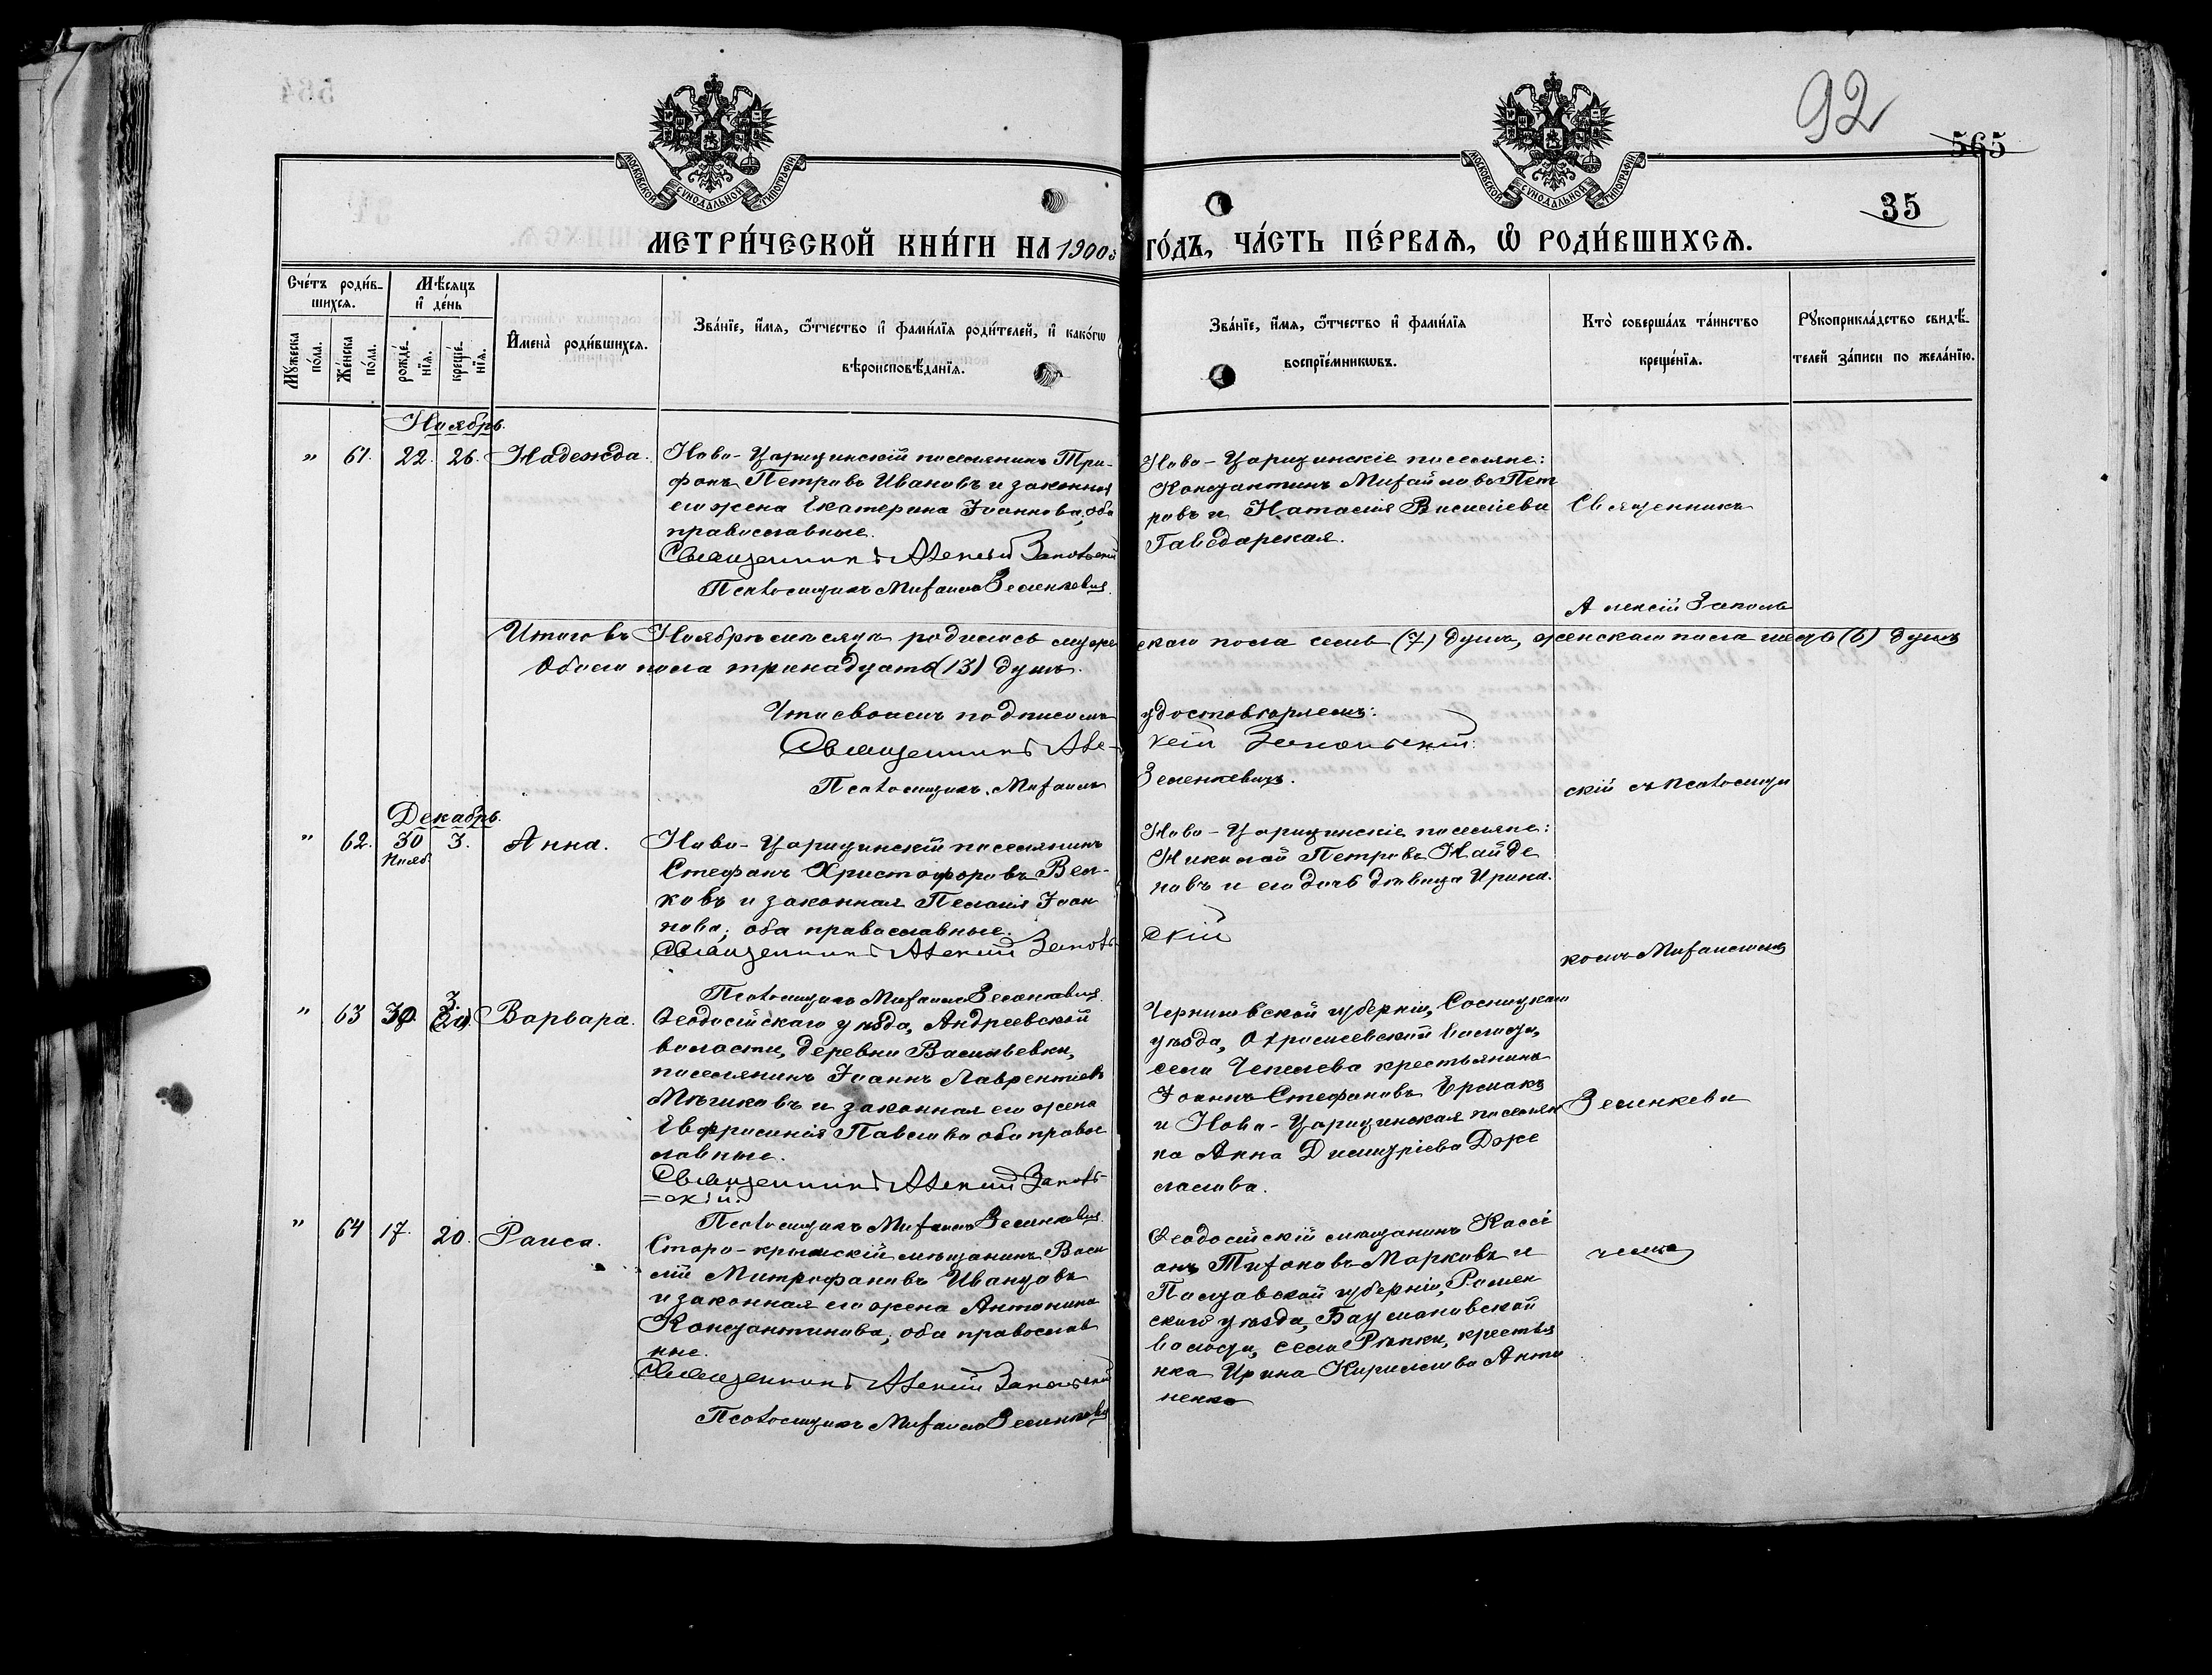 92
565
35
МОСКОВСКОЙ СѴНОДАЛЬНОЙ ТИПОГРАФІИ
МОСКОВСКОЙ СѴНОДАЛЬНОЙ ТИПОГРАФІИ
МЕТРИ́ЧЕСКОЙ КНИ́ГИ НА 1900 ГО́ДЪ, ЧА́СТЬ ПЕ́РВАѦ, Ѡ҆ РОДИ́ВШИХСѦ.
Сче́тъ роди́в-
шихсѧ.
Мѣ́сѧцъ
и҆ де́нь
Мꙋ́жеска по́ла.
Же́нска по́ла.
рожде́-нїѧ.
креще́-нїѧ.
И҆мена̀ роди́вшихсѧ.
Зва́нїе, и҆́мѧ, ѻ҆́тчество и҆ фами́лїѧ роди́телей, и҆ како́гѡ
вѣроисповѣ́данїѧ.
Зва́нїе, и҆́мѧ, ѻ҆́тчество и҆ фами́лїѧ
воспрїе́мникѡвъ.
Кто̀ соверша́лъ та́инство
креще́нїѧ.
Рꙋкоприкла́дство свидѣ́-
телей за́писи по жела́нїю.
Ноябрь.
" 61. 22. 26. Надежда.
Ново-Царицинскій поселянинъ Три-
фонъ Петровъ Ивановъ и законная
его жена Екатерина Іоаннова, оба
православные.
Священникъ Алексій Запольскій
Псаломщикъ Михаилъ Зеленкевич
Ново-Царицинскіе поселяне:
Константинъ Михайловъ Пет
ровъ и Наталія Василіева
Гаведарская.
Священникъ
Алексій Заполь
Итого въ Ноябрѣ мѣсяцѣ родилось муже
скаго пола семь (7) душъ, женскаго пола шесть (6) душъ
Обоего пола тринадцать (13) душъ.
Что своимъ подписомъ
удостовѣряемъ:
Священникъ Але-
ксій Запольскій.
Псаломщикъ Михаилъ
Зеленкевичъ.
скій съ псаломщи
Декабрь.
" 62. 30 Нояб. 3. Анна.
Ново-Царицинскій поселянинъ
Стефанъ Христофоровъ Вел-
ковъ и законная Пелагія Іоан
нова; оба православные.
Священникъ Алексій Заполь-
Псаломщикъ Михаилъ Зеленкевич
Ново-Царицинскіе поселяне:
Николай Петровъ Найде
новъ и его дочь дѣвица Ирина.
скій
комъ Михаиломъ
" 63 30. 3. Варвара.
Ѳеодосійскаго уѣзда, Андреевской
волости, деревни Васильевки,
поселянинъ Іоаннъ Лаврентіевъ
Мѣшковъ и законная его жена
Евфросинія Павлова оба правос
лавные.
Священникъ Алексій Заполь-
=скій.
Псаломщикъ Михаилъ Зеленкевич
Черниговской губерніи, Сосницкаго
уѣзда, волости,
села крестьянинъ
Іоаннъ Стефановъ Ермакъ
и Ново-Царицинская поселян
ка Анна Димитріева Дже
малова.
Зеленкеви
" 64 17. 20. Раиса.
Старо-крымскій мѣщанинъ Васи
лій Митрофановъ Иванцовъ
и законная его жена Антонина
Константинова; оба православ
ные.
Священникъ Алексій Запольскій
Псаломщикъ Михаилъ Зеленкевич
Ѳеодосійскій мѣщанинъ Кассі
анъ Тихоновъ Марковъ и
Полтавской губерніи, Ромен
скаго уѣзда,
волости, села Рѣпки, крестья
нка Ирина Кириллова Анто
ненко
чемъ